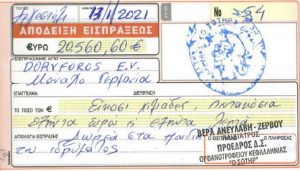 Αργοστόλι 13/1/2021 No 54
ΑΠΟΔΕΙΞΗ ΕΙΣΠΡΑΞΕΩΣ
€ΥΡΩ 20560,60 €
ΕΙΣΠΡΑΞΑΜΕ ΑΠΟ
DORYFOROS E.V.
Μόναχο Γερμανία
ΕΠΑΓΓΕΛΜΑ ΔΙΕΥΘΥΝΣΗ
ΤΟ ΠΟΣΟ ΤΩΝ € Είκοσι χιλιάδες, πεντακόσια
εξήντα ευρώ & εξήντα λεπτά
ΑΙΤΙΟΛΟΓΙΑ ΕΙΣΠΡΑΞΗΣ Δωρεά στα παιδιά
του ιδρύματος
ΒΕΡΑ ΑΝΕΥΛΑΒΗ - ΖΕΡΒΟΥ
ΠΑΙΔΙΑΤΡΟΣ
ΠΡΟΕΔΡΟΣ Δ.Σ.
ΟΡΦΑΝΟΤΡΟΦΕΙΟΥ ΚΕΦΑΛΛΗΝΙΑΣ
"Ο ΣΩΤΗΡ"